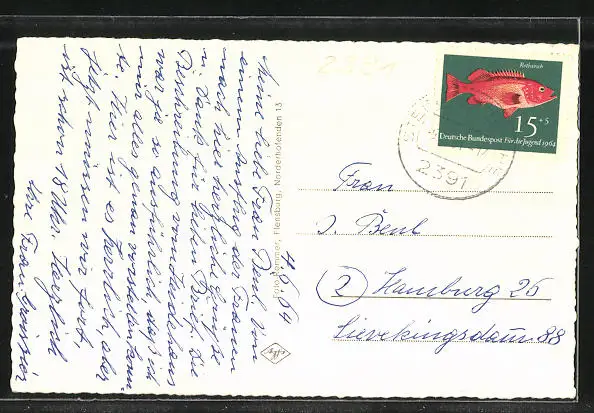 Rotbarsch
15+5
Deutsche Bundespost Für die Jugend 1964
2391
2391
4. 6. 64
Meine liebe Frau Beul, von
einem Ausflug der Frauen
nach hier herzliche Grüße
u. Dank für lieben Brief. Die
Beschreibung vom Landhaus
war ja so ausführlich, daß ich
mir alles genau vorstellen kann
te. Hier ist es herrlich, aber
jetzt müssen wir fort,
ist schon 18 Uhr. Herzlich
Ihre Frau
Foto Remmer, Flensburg, Norderhofenden 13
Frau
J. Beul
(2) Hamburg 26
Sievekingsdamm 88